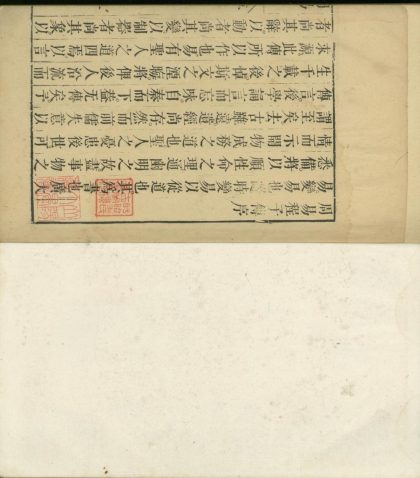 周易程子傳序
易變易也隨時變易以從道也其爲書也廣大
悉備將以順性命之理通幽明之故盡事物之
情而示開物成務之道也聖人之憂患後世可
謂至矣去古雖遠遺經尚存然而前儒失意以
傳言後學誦言而忘味自秦而下蓋无傳矣予
生千載之後悼斯文之湮晦將俾後人沿流而
求源此傳所以作也易有聖人之道四焉以言
者尚其辭以動者尚其變以制器者尚其象以